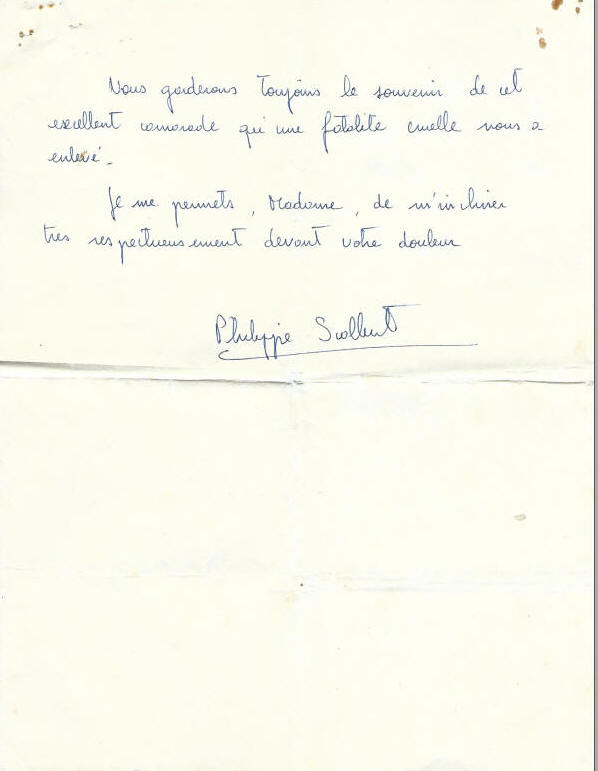 Nous garderons toujours le souvenir de cet
excellent camarade qu'une fatalité cruelle nous a
enlevé.
Je me permets, Madame, de m'incliner
très respectueusement devant votre douleur
Philippe